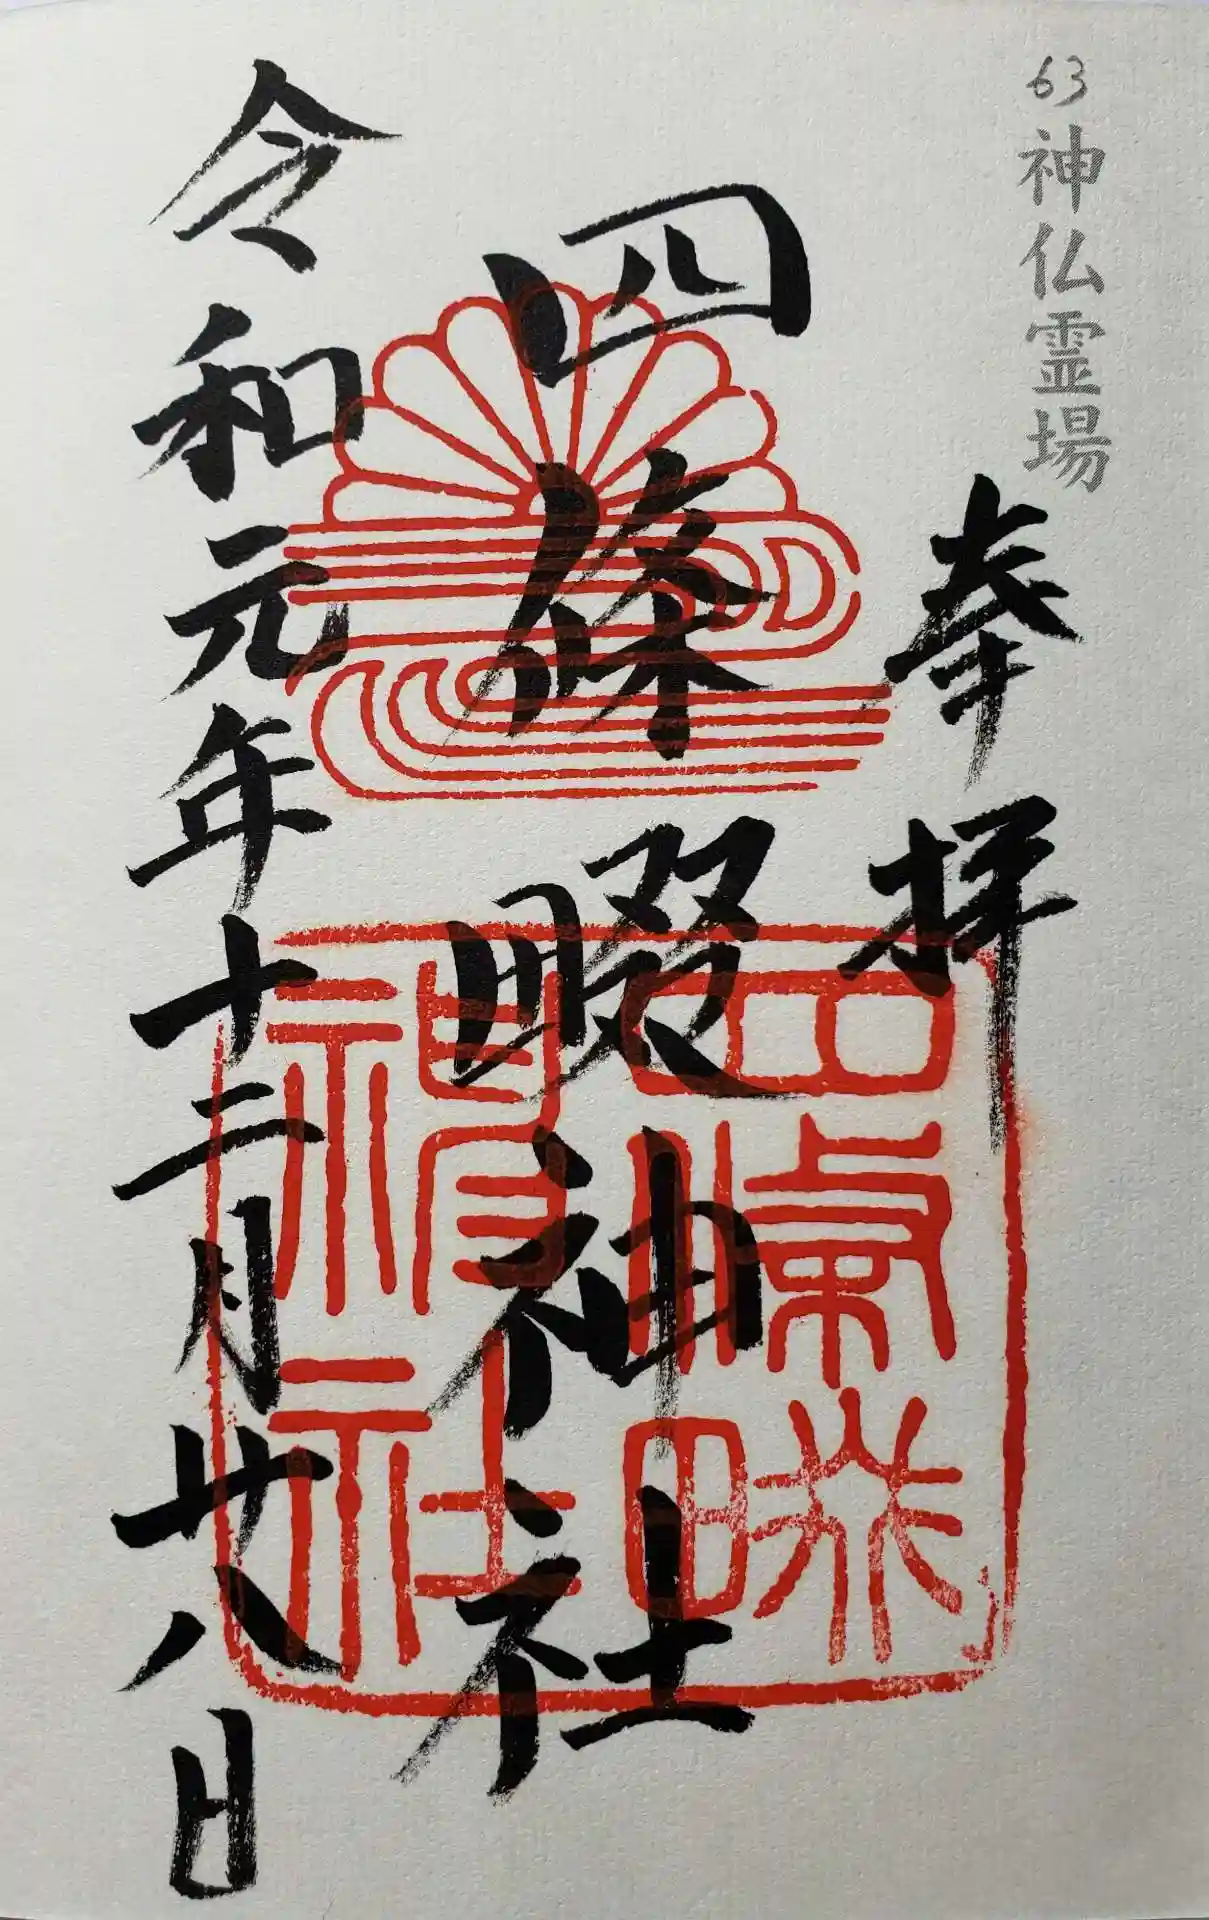 63
神仏霊場
奉拝
四條畷神社
四條畷神社
令和元年十二月廿八日